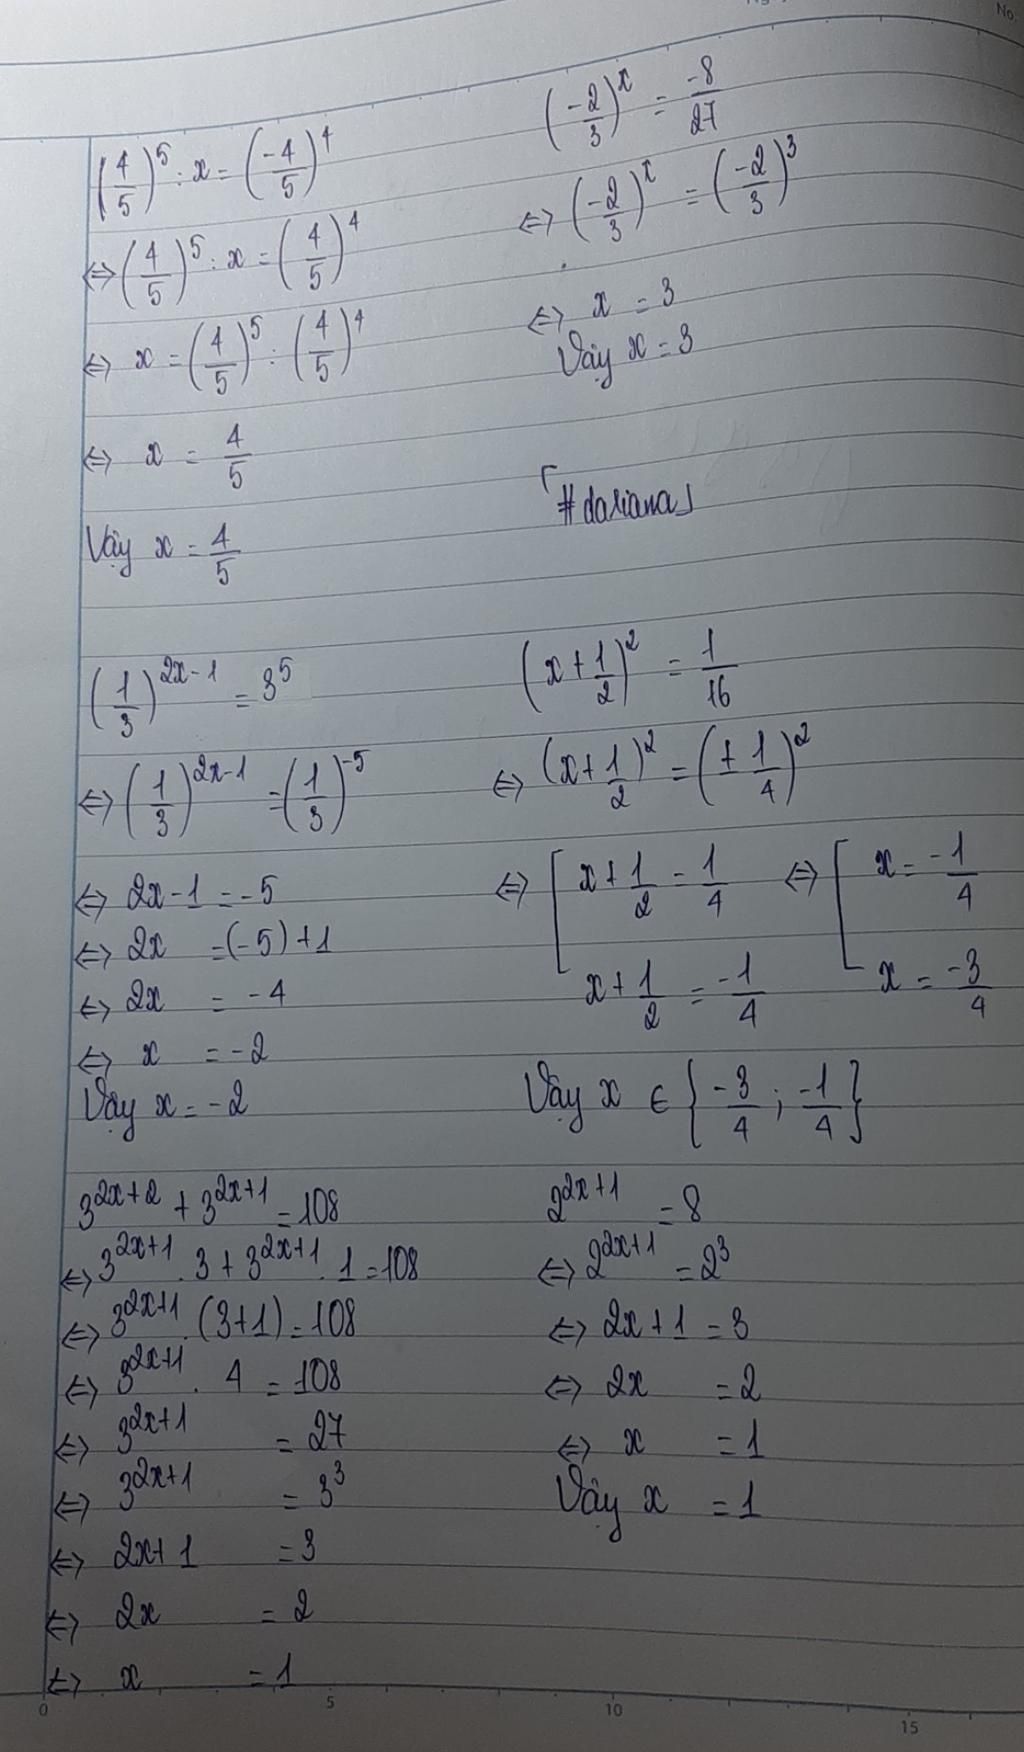 No.
(4/5)^5 : x = (-4/5)^4
⇔ (4/5)^5 : x = (4/5)^4
⇔ x = (4/5)^5 : (4/5)^4
⇔ x = 4/5
Vậy x = 4/5
(-2/3)^x = -8/27
⇔ (-2/3)^x = (-2/3)^3
⇔ x = 3
Vậy x = 3
「#dariana」
(1/3)^(2x-1) = 3^5
⇔ (1/3)^(2x-1) = (1/3)^-5
⇔ 2x-1 = -5
⇔ 2x = (-5)+1
⇔ 2x = -4
⇔ x = -2
Vậy x = -2
(x+1/2)^2 = 1/16
⇔ (x+1/2)^2 = (±1/4)^2
⇔ [ x+1/2 = 1/4 ⇔ [ x = -1/4
x+1/2 = -1/4 x = -3/4
Vậy x ∈ {-3/4 ; -1/4}
3^(2x+2) + 3^(2x+1) = 108
⇔ 3^(2x+1) . 3 + 3^(2x+1) . 1 = 108
⇔ 3^(2x+1) . (3+1) = 108
⇔ 3^(2x+1) . 4 = 108
⇔ 3^(2x+1) = 27
⇔ 3^(2x+1) = 3^3
⇔ 2x+1 = 3
⇔ 2x = 2
⇔ x = 1
2^(2x+1) = 8
⇔ 2^(2x+1) = 2^3
⇔ 2x+1 = 3
⇔ 2x = 2
⇔ x = 1
Vậy x = 1
0 5 10 15